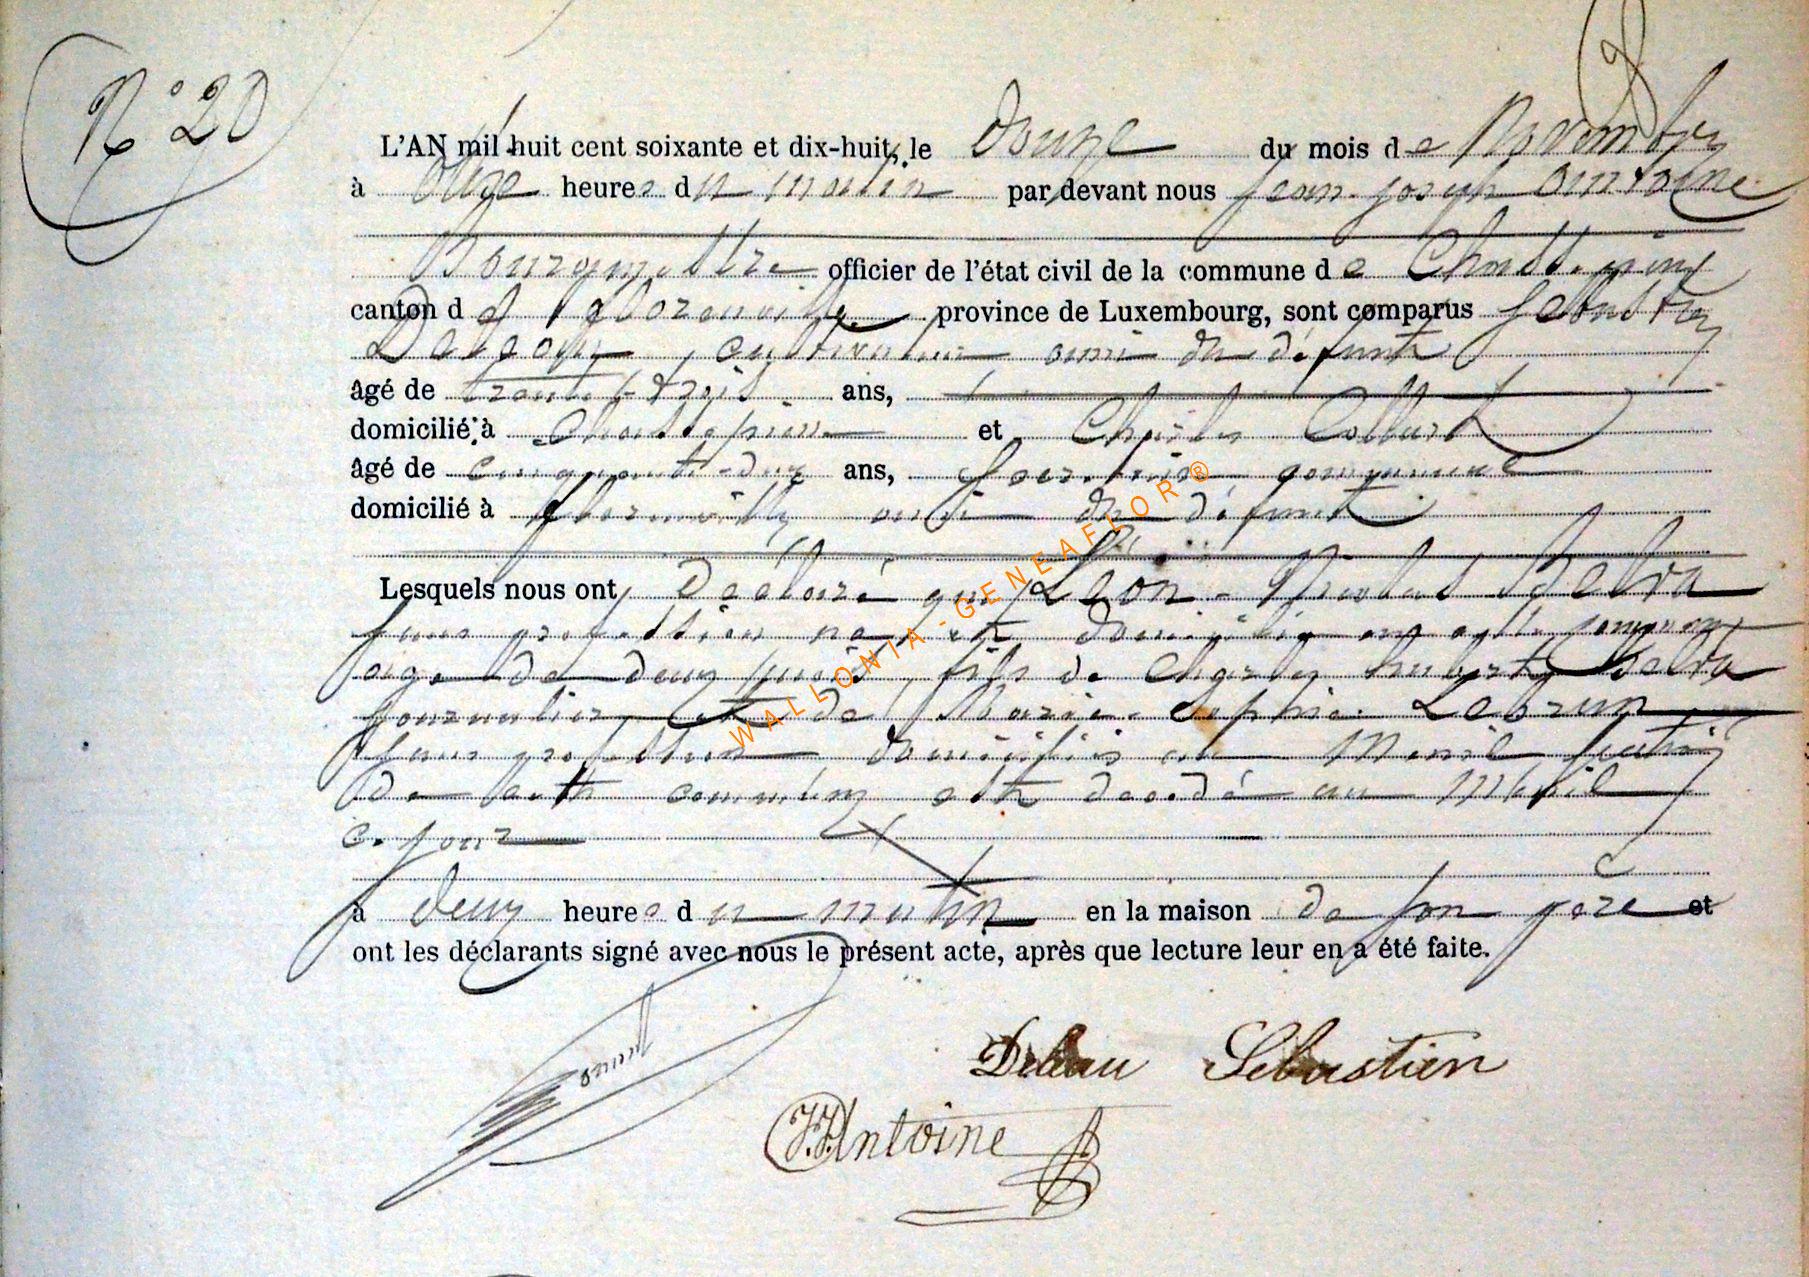 N° 20
L'AN mil huit cent soixante et dix-huit, le douze du mois de Novembre
à onze heures du matin par devant nous Jean-Joseph Antoine
Bourgmestre officier de l'état civil de la commune de Chassepierre
canton de Florenville province de Luxembourg, sont comparus Sébastien
cultivateur ami du défunt
âgé de trente-trois ans,
domicilié à Chassepierre et Charles
âgé de cinquante-deux ans, secrétaire communal
domicilié à Florenville ami du défunt
Lesquels nous ont déclaré que Léon-Nicolas Delva
sans profession né et domicilié en cette commune
âgé de deux mois, fils de Charles hubert Delva
journalier, et de Marie-Sophie Lebrun
sans profession domiciliés au Menil section
de cette commune est décédé au Ménil
ce jour
à deux heures du matin en la maison de son père et
ont les déclarants signé avec nous le présent acte, après que lecture leur en a été faite.
Deleau Sébastien
J.J. Antoine
WALLONIA-GENEAFLOR®